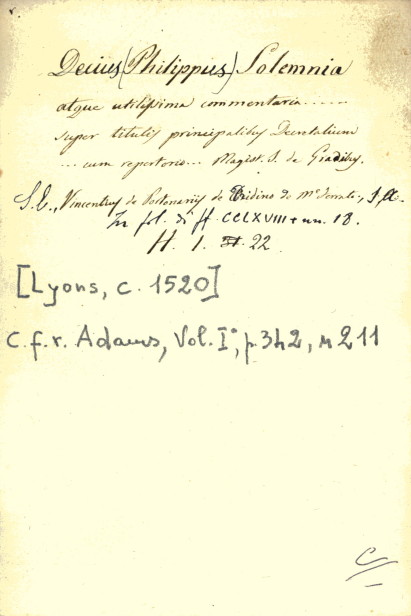 Decius (Philippus) Solemnia
atque utilissima commentaria ......
super titulis principalibus Decretalium
... cum repertorio ... Magist. J. de Gradibus.
S. L., Vincentius de Portonariis de Tridino de Mte ferrato, S. A.
In fol. di ff. CCLXVIII + nn. 18.
H. 1. 22
[Lyons, c. 1520]
C.f.r. Adams, Vol. I°, p. 342, n 211
C